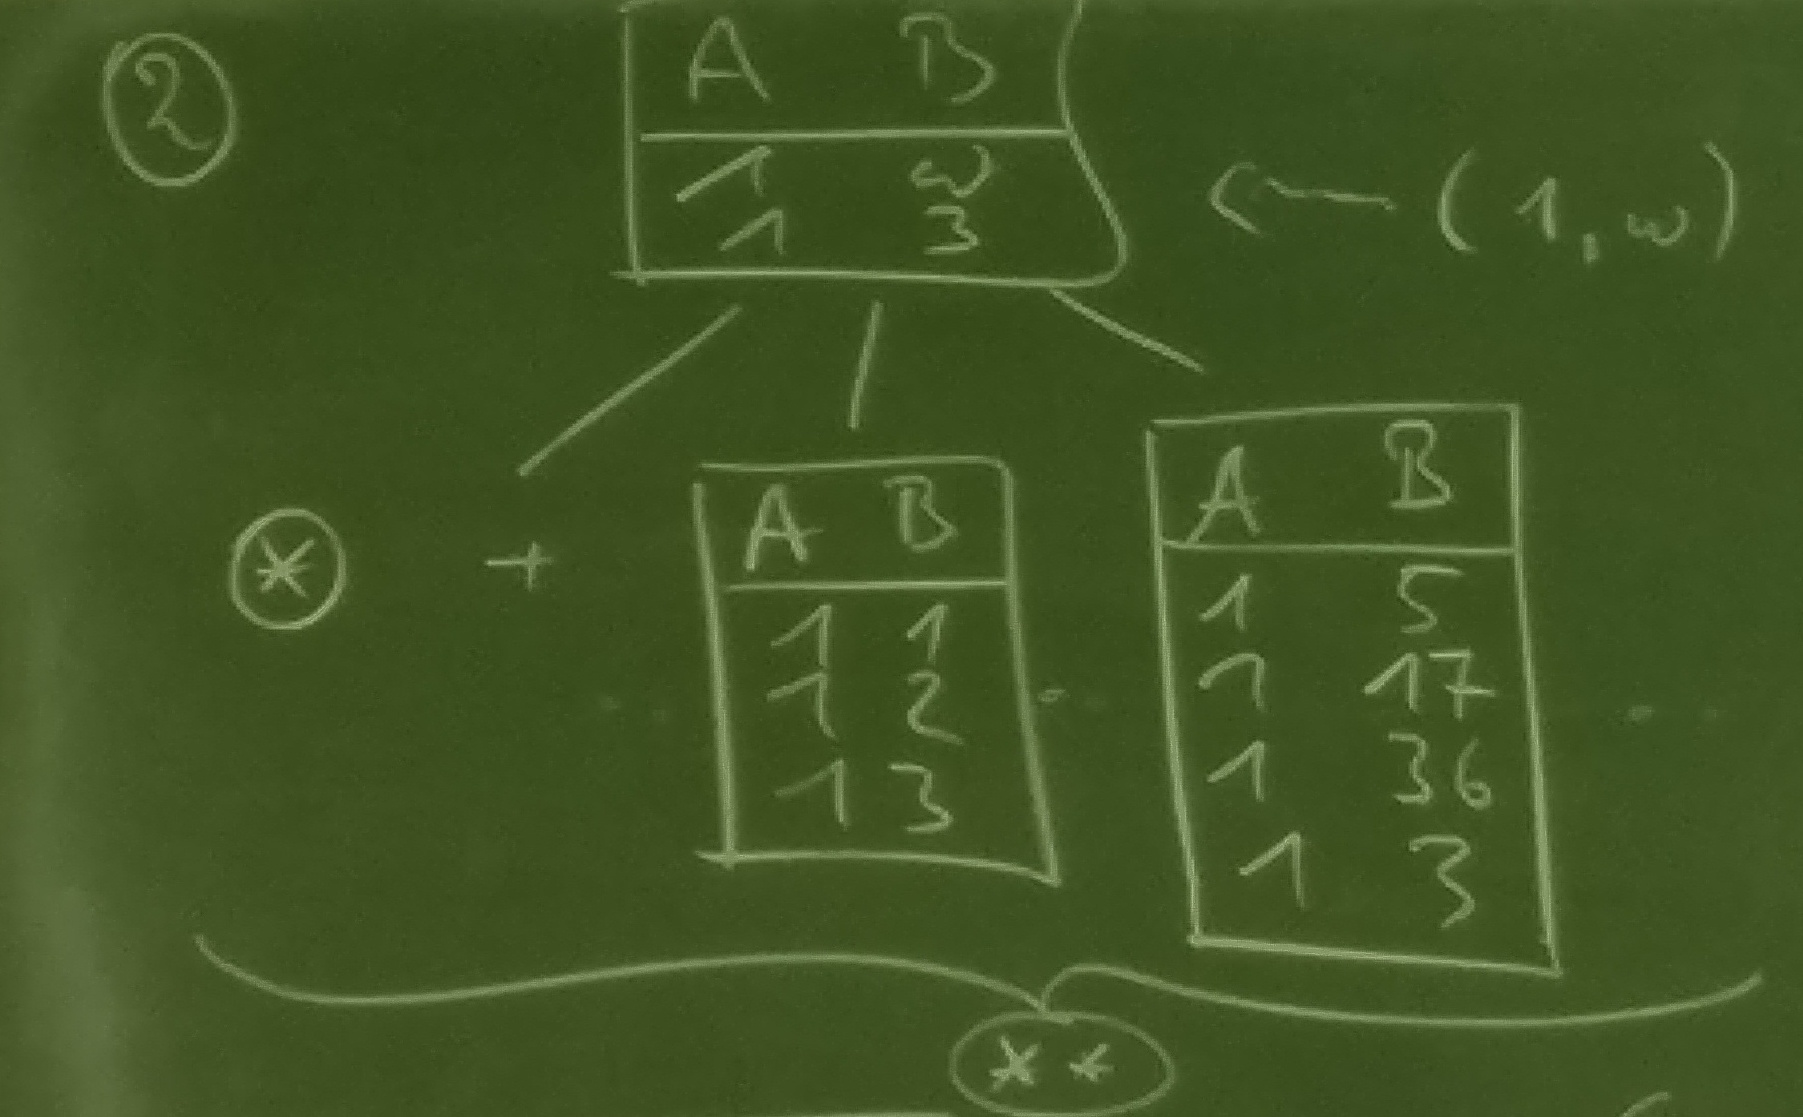 2
A B
1 ω
1 3
← (1, ω)
* +
A B
1 1
1 2
1 3
A B
1 5
1 17
1 36
1 3
**